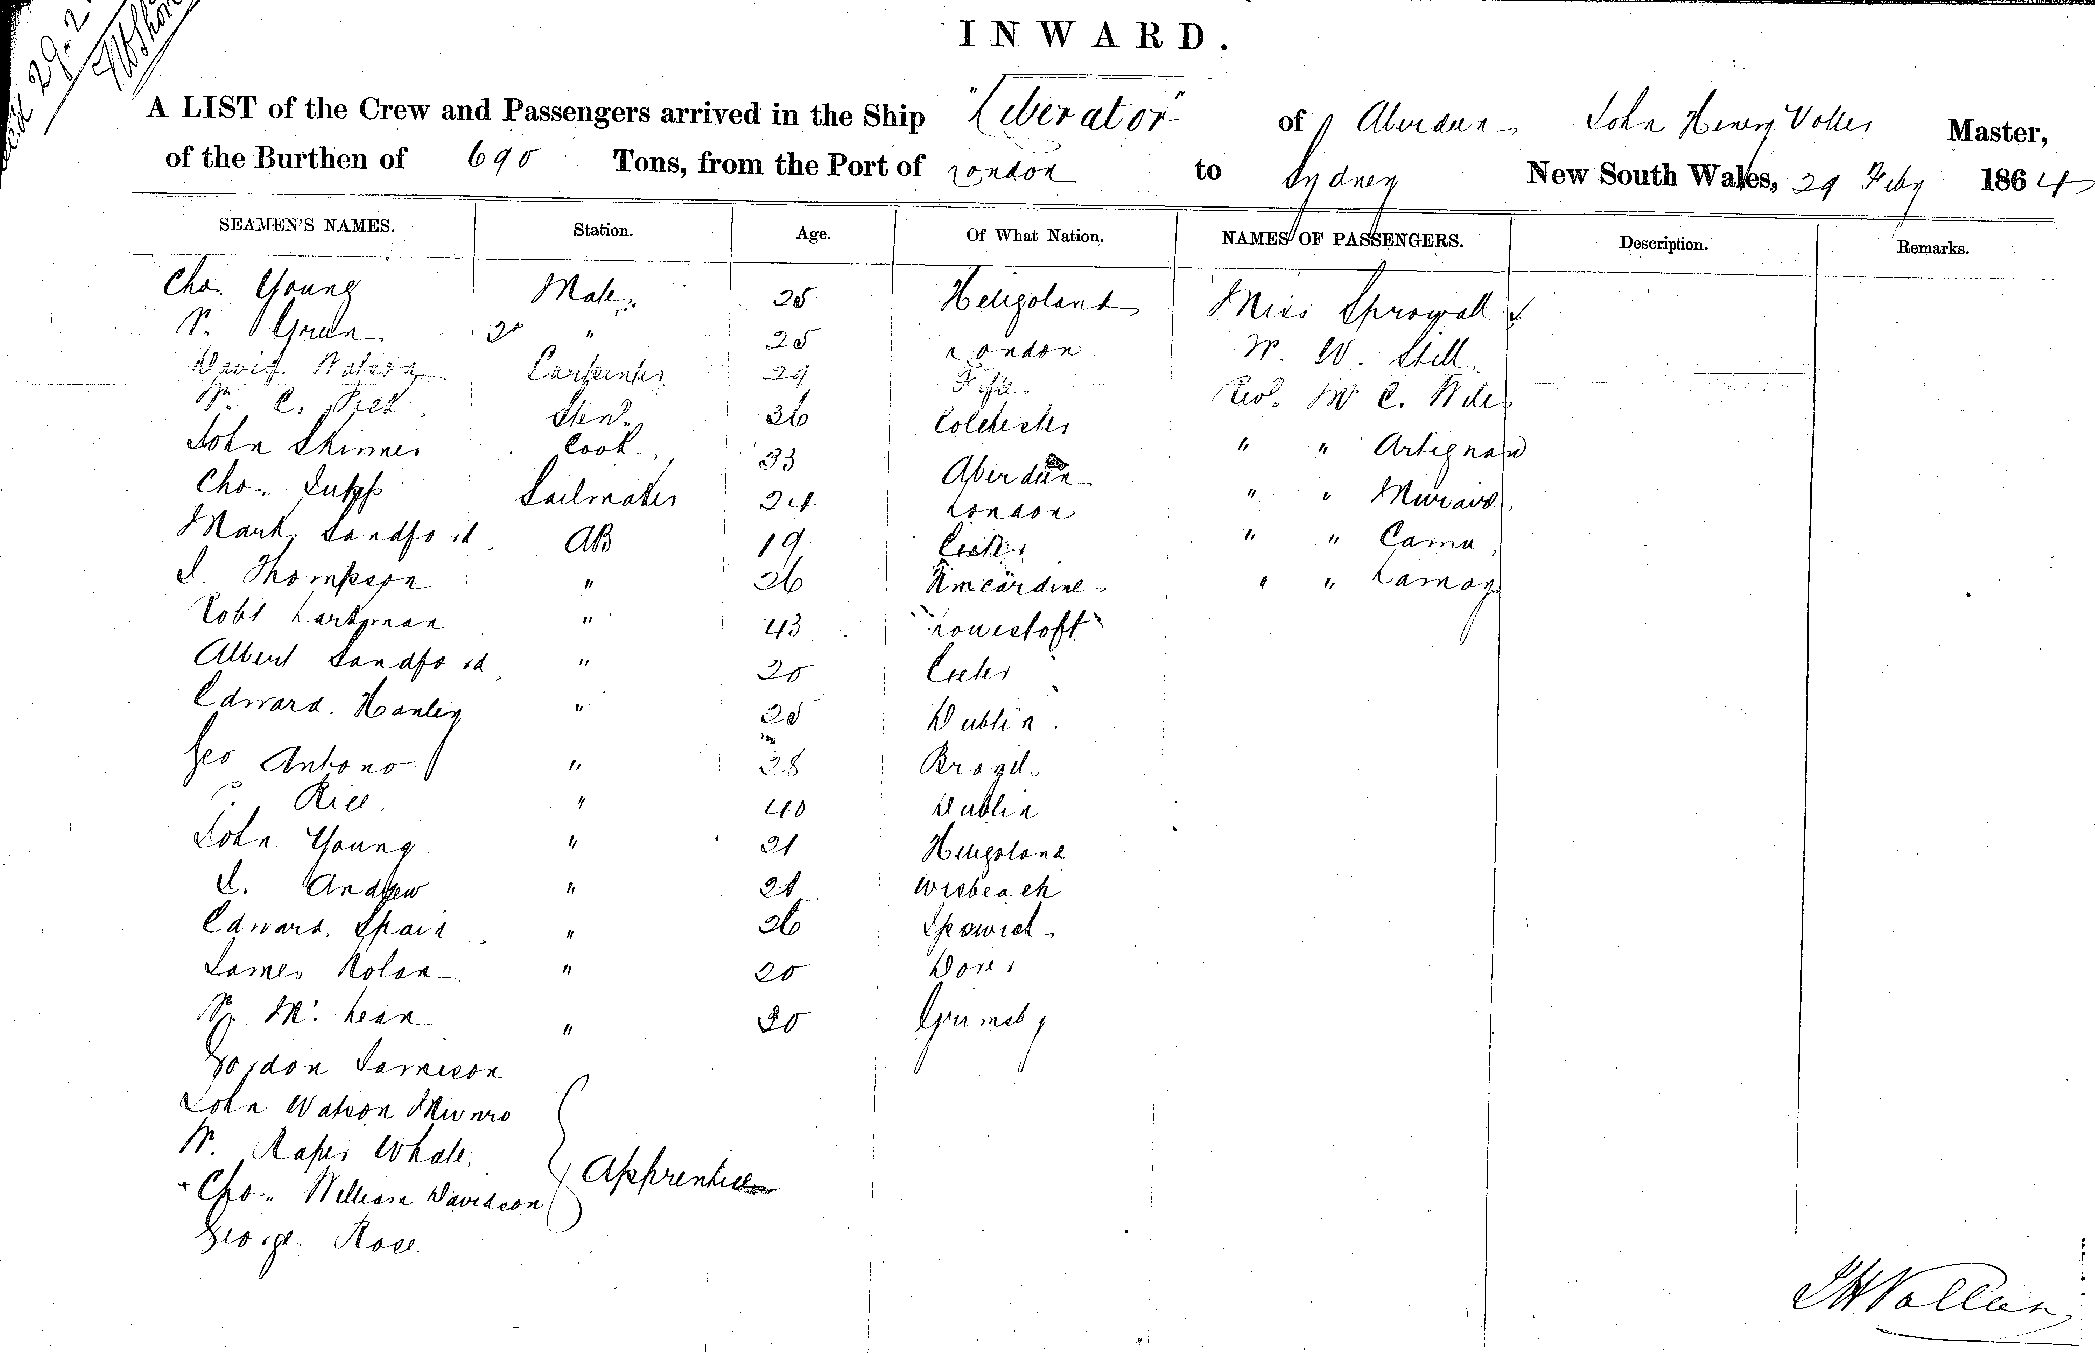 INWARD.
A LIST of the Crew and Passengers arrived in the Ship "Liberator" of Aberdeen John Henry Master,
of the Burthen of 690 Tons, from the Port of London to Sydney New South Wales, 29 Feby 1864
SEAMEN'S NAMES. Station. Age. Of What Nation. NAMES OF PASSENGERS. Description. Remarks.
Chas. Young Mate 25 Heligoland Miss Sprowall
Green 2d " 25 London W. W. Still
David Watson Carpenter 29 Fife Revd. Mr C.
Wm. C. Stewd. 36 Colchester
John Skinner Cook 33 Aberdeen " " Artignan
Chas. Sailmaker 24 London " "
Mark Sandford AB 19 Exeter " " Cama
J. Thompson " 26 Kincardine " "
Robt Larkman " 43 "Lowestoft"
Albert Sandford " 20 Exeter
Edward Hanley " 25 Dublin.
Geo Antonio " 28 Brazil
Rice " 40 Dublin
John Young " 21 Heligoland
J. Andrew " 21 Wisbeach
Edward Spain " 26 Ipswich
James Nolan " 20 Dover
Mc. Lean " 20 Grimsby
Gordon Jamieson
John Watson Munro
W. Raper Whale
Chas. William Davidson Apprentices
George Rose